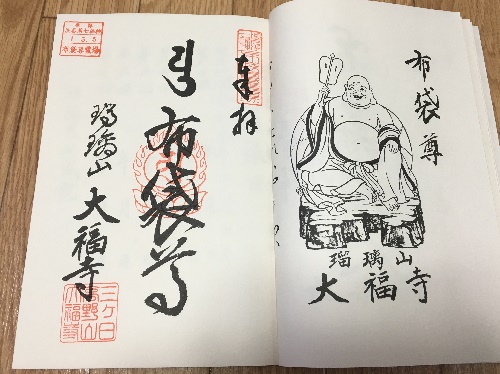 布袋尊
瑠璃山
大福寺
奉拝
布袋尊
瑠璃山
大福寺
三ヶ日
福寺